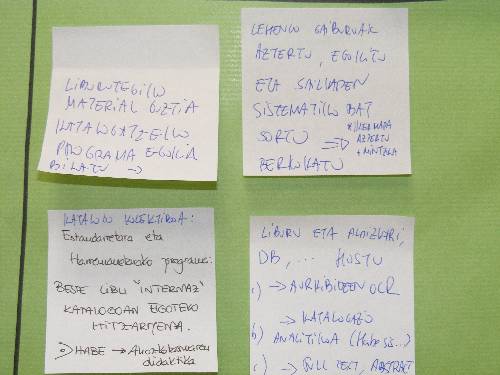 LIBURUTEGIKO
MATERIAL GUZTIA
KATALOGATZEKO
PROGRAMA EGOKIA
BILATU →
LEHENGO GAIBURUAK
AZTERTU, EGOKITU
ETA SAILKAPEN
SISTEMATIKO BAT
SORTU ⇒
AZTERTU
BERKOKATU
KATALOGO KOLEKTIBOA:
Estandarretara eta
Hamenaetarako programa:
BESTE LIBU "INTERNAZ"
KATALOGOAN EGOTEKO
HITZARMENA.
HABE →
didaktika
LIBURU ETA ALDIZKARI,
DB, ... HUSTU
a) → AURKIBIDEEN OCR
→ KATALOGAZIO
b) ANALITIKOA (Habe is...)
c) → FULL TEXT, ABSTRACT